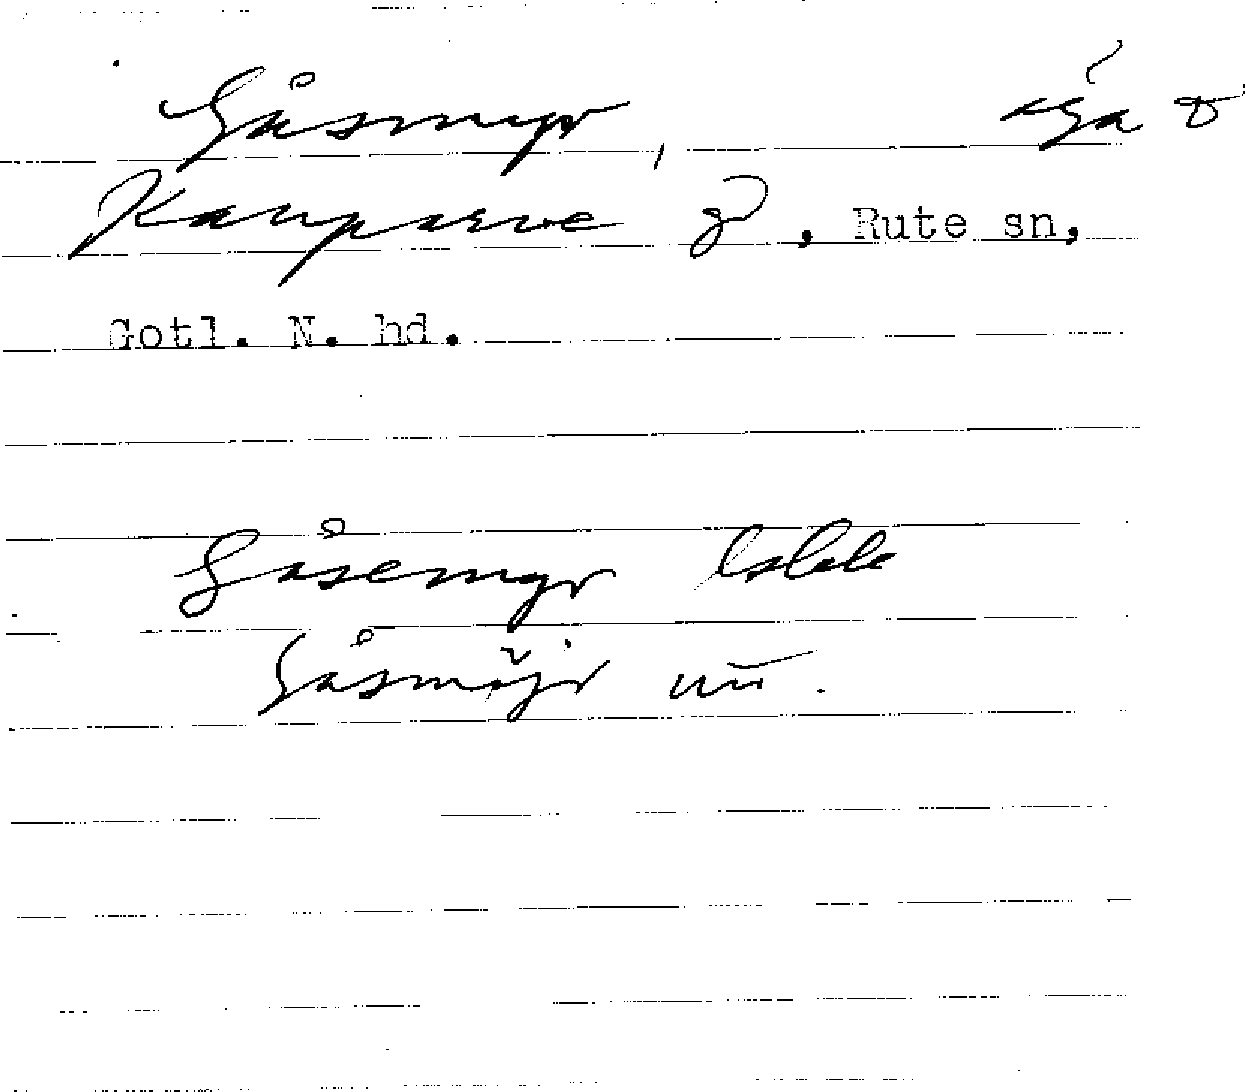 Gåsmyr,
Kauparve g, Rute sn,
Gotl. N. hd.
Gåsemyr
Gåsmöjr nu.